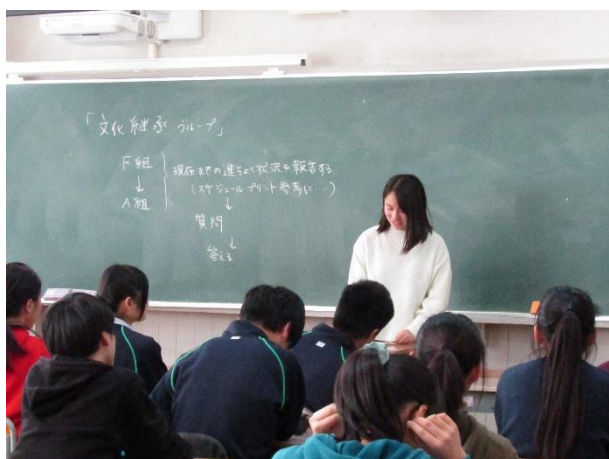 「文化継承グループ」
F組 現在までの進ちょく状況を報告する
↓ (スケジュールプリント参考に…)
A組 ↓
質問
↓
答える